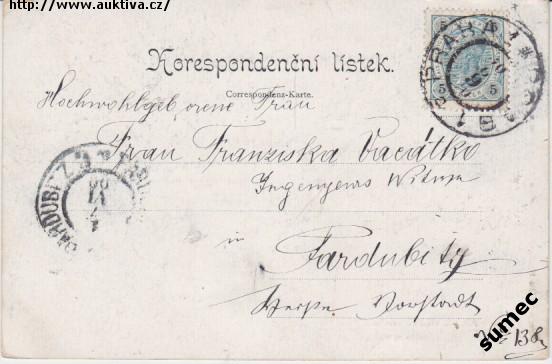 http://www.auktiva.cz/
Korespondenční lístek.
Correspondenz-Karte.
Hochwohlgeborene Frau
Frau Franziska Vacátko
Ingenyeurs Witwe
in
Pardubitz
Vorstadt
PRAHA 1
PARDUBITZ
5
5
sumec
138